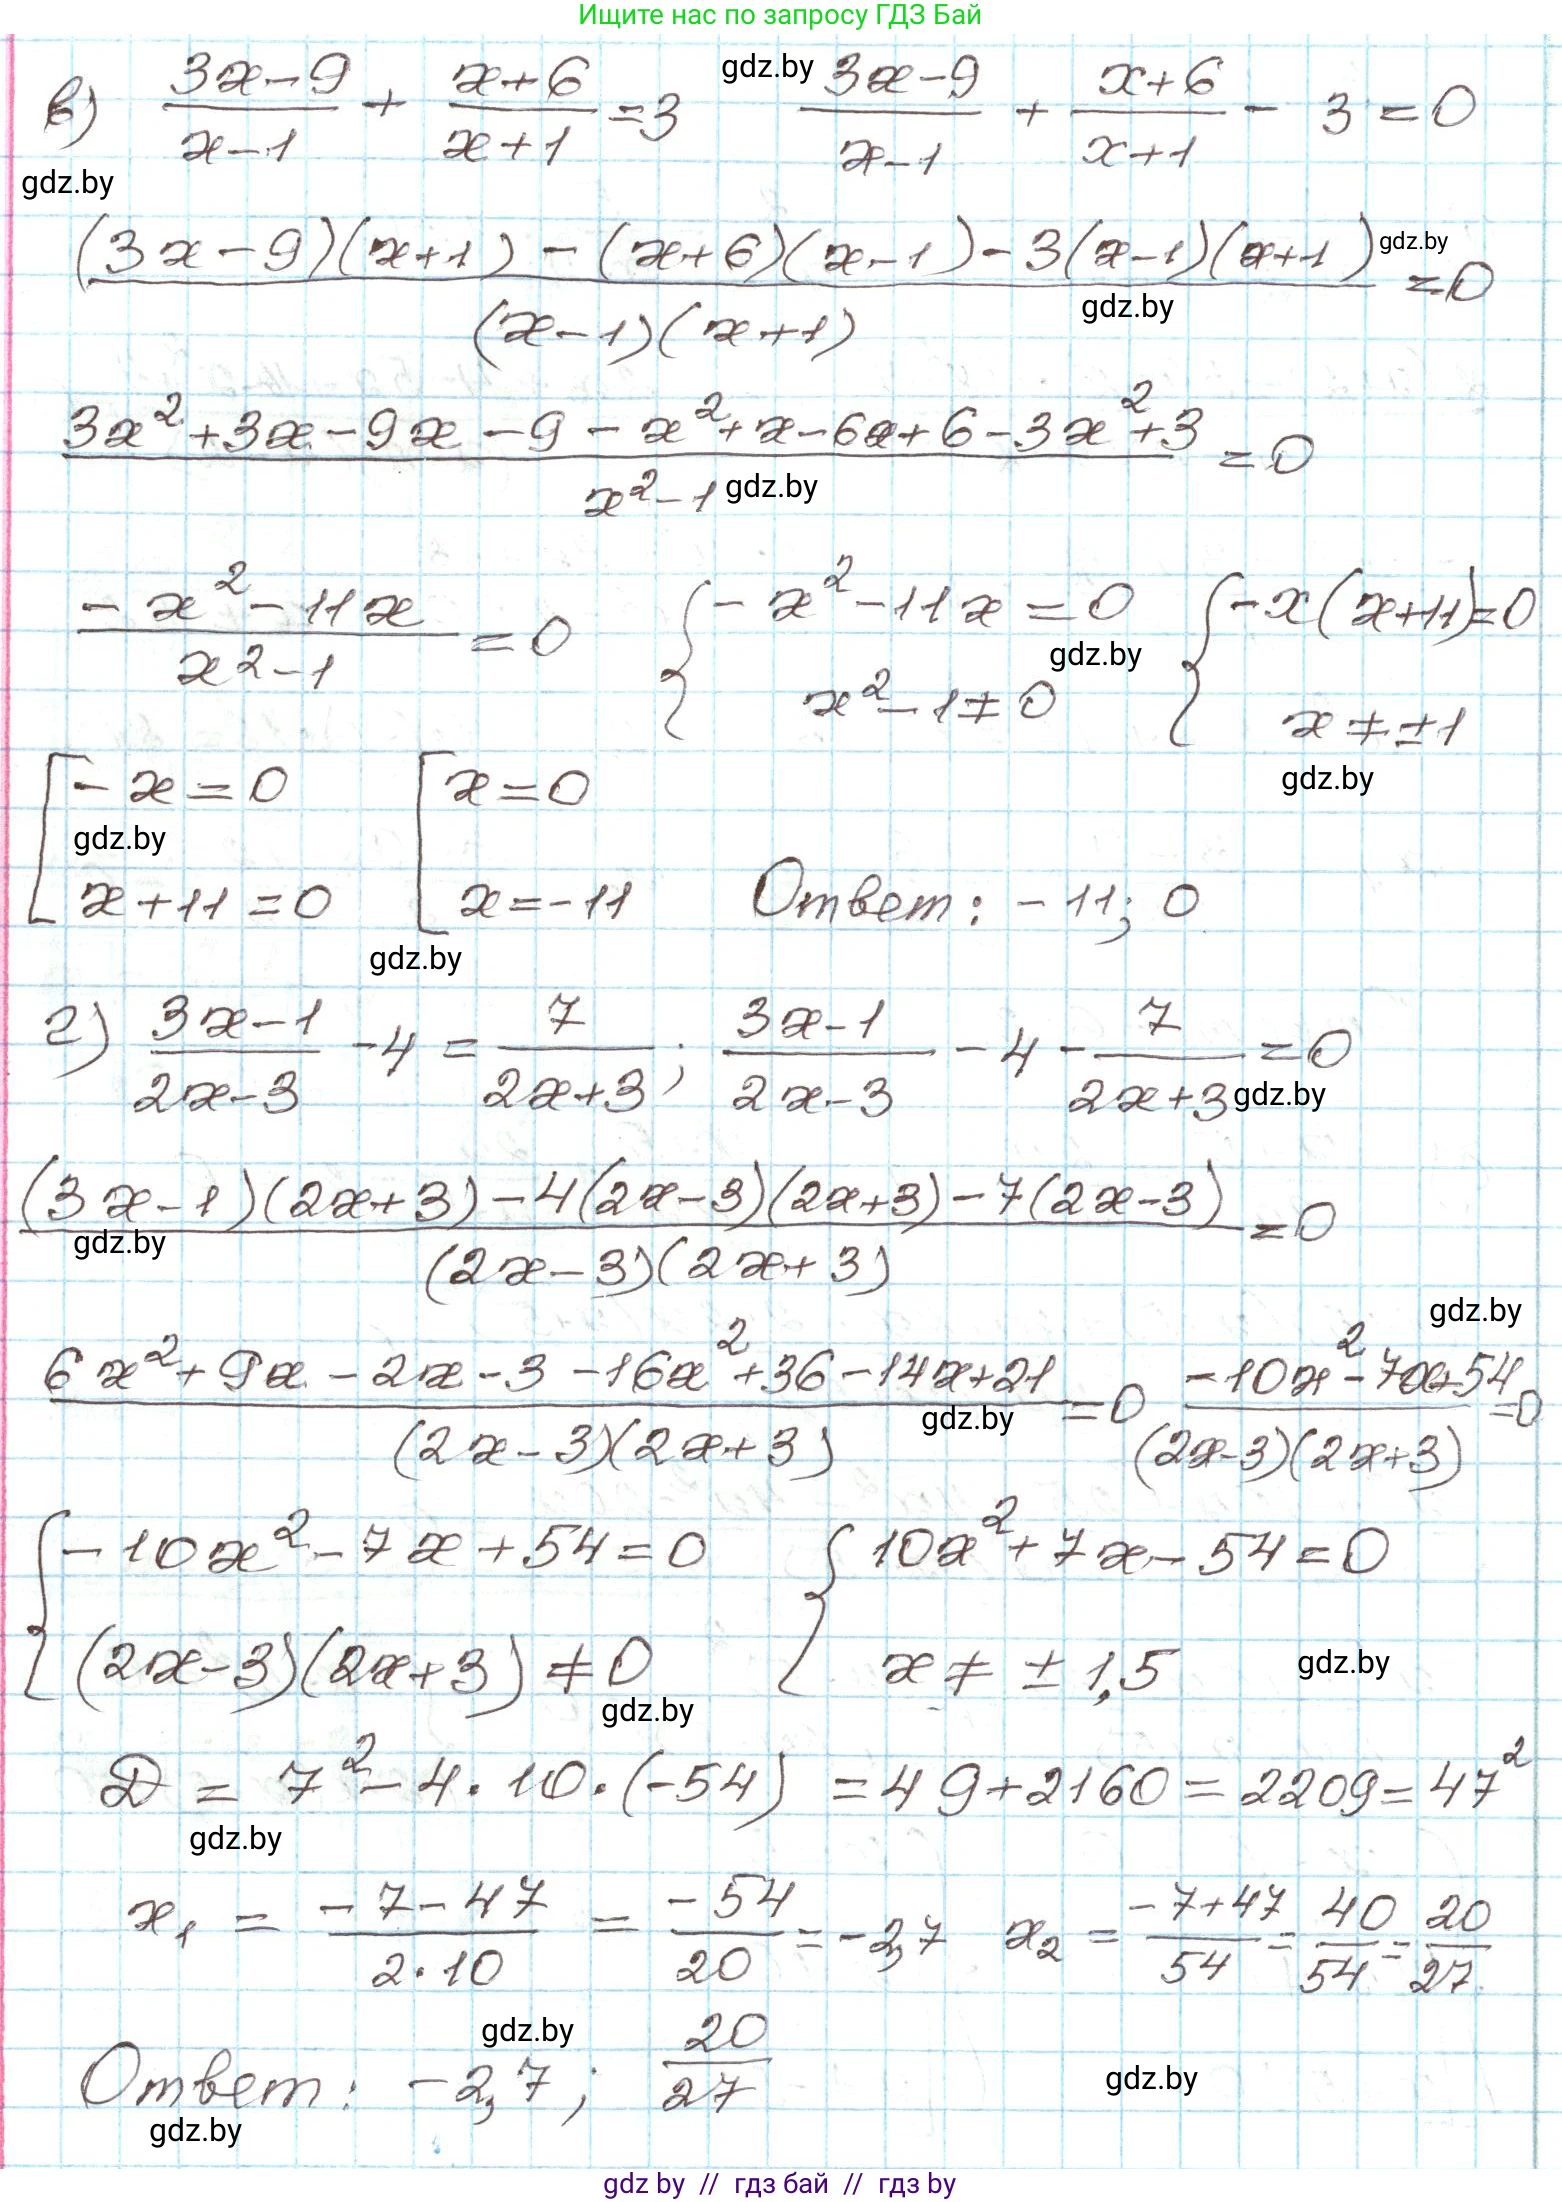 Ищите нас по запросу ГДЗ Бай
в) (3x-9)/(x-1) + (x+6)/(x+1) = 3 gdz.by (3x-9)/(x-1) + (x+6)/(x+1) - 3 = 0
gdz.by
((3x-9)(x+1) - (x+6)(x-1) - 3(x-1)(x+1))/((x-1)(x+1)) = 0 gdz.by
gdz.by
(3x²+3x-9x-9-x²+x-6x+6-3x²+3)/(x²-1) = 0
gdz.by
(-x²-11x)/(x²-1) = 0 { -x²-11x=0 x²-1≠0 { -x(x+11)=0 x≠±1
gdz.by
gdz.by
[ -x=0 x+11=0 [ x=0 x=-11 Ответ: -11; 0
gdz.by
gdz.by
г) (3x-1)/(2x-3) - 4 = 7/(2x+3); (3x-1)/(2x-3) - 4 - 7/(2x+3) = 0
gdz.by
((3x-1)(2x+3) - 4(2x-3)(2x+3) - 7(2x-3))/((2x-3)(2x+3)) = 0
gdz.by
gdz.by
(6x²+9x-2x-3-16x²+36-14x+21)/((2x-3)(2x+3)) = 0 (-10x²-7x+54)/((2x-3)(2x+3)) = 0
gdz.by
{ -10x²-7x+54=0 (2x-3)(2x+3)≠0 { 10x²+7x-54=0 x≠±1,5
gdz.by
gdz.by
D = 7²-4·10·(-54) = 49+2160 = 2209 = 47²
gdz.by
x₁ = (-7-47)/(2·10) = -54/20 = -2,7 x₂ = (-7+47)/54 = 40/54 = 20/27
gdz.by
Ответ: -2,7; 20/27
gdz.by
gdz.by
gdz by // гдз бай // гдз by